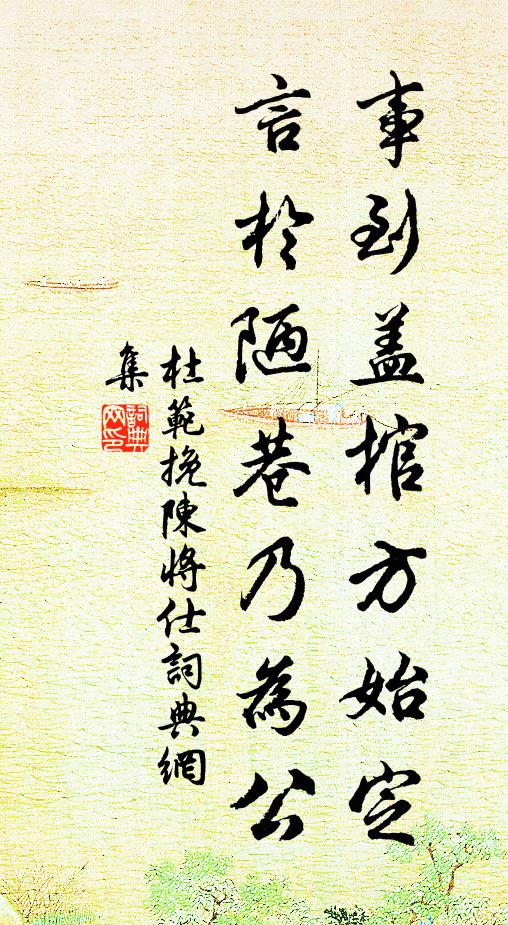 事到盖棺方始定
言於陋巷乃為公
杜範挽陳將仕詞典網
集
詞典
网印